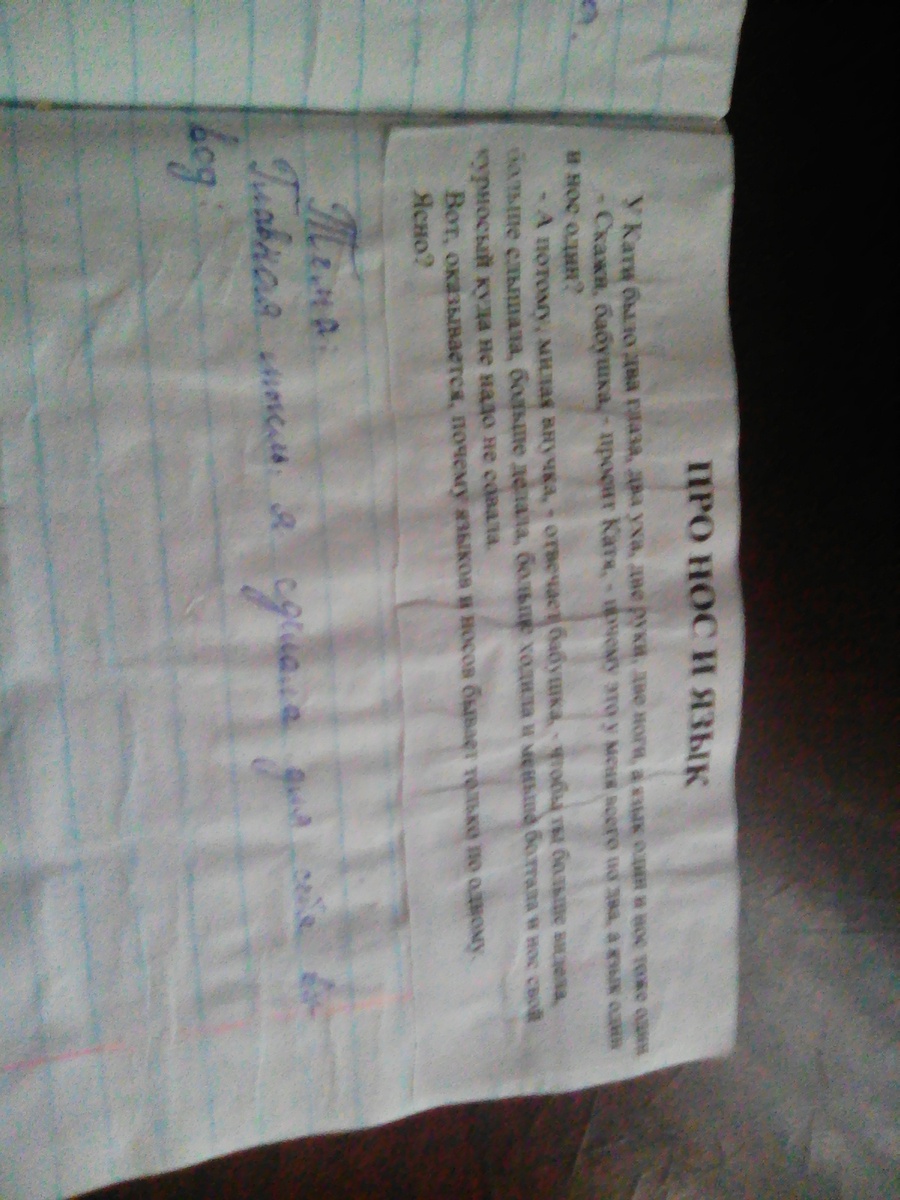 ПРО НОС И ЯЗЫК
У Кати было два глаза, два уха, две руки, две ноги, а язык один и нос тоже один.
- Скажи, бабушка, - просит Катя, - почему это у меня всего по два, а язык один
и нос один?
- А потому, милая внучка, - отвечает бабушка, - чтобы ты больше видела,
больше слышала, больше делала, больше ходила и меньше болтала и нос свой
курносый куда не надо не совала.
Вот, оказывается, почему языков и носов бывает только по одному.
Ясно?
Тема:
Главная мысль: я сделала для себя вы-
вод: